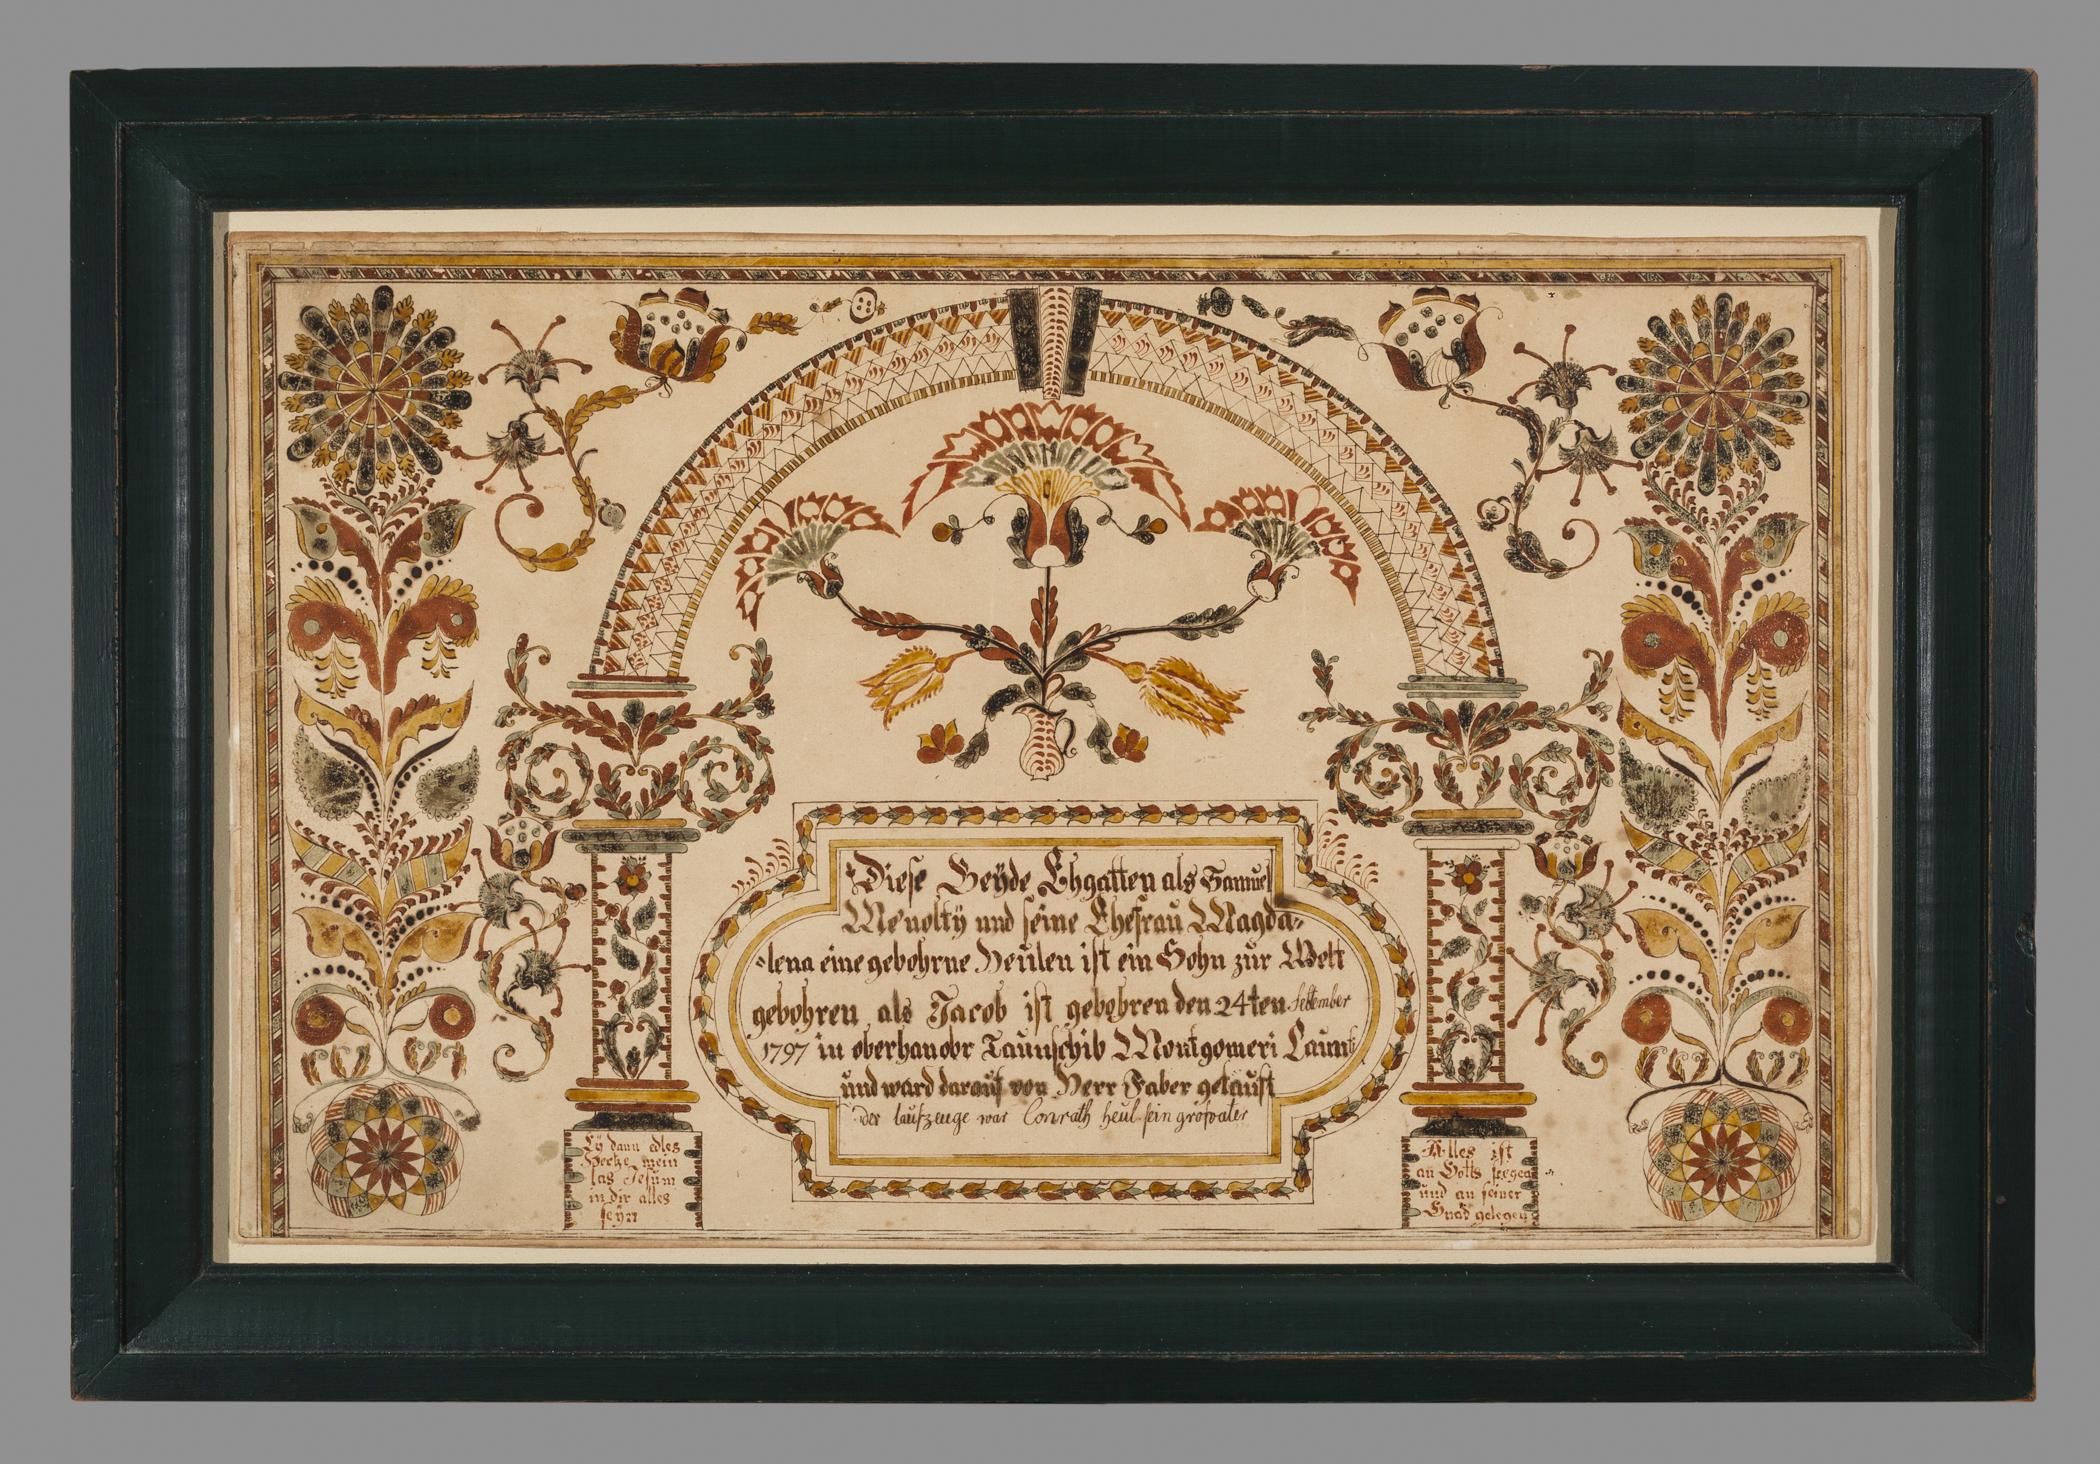 Diese Beÿde Ehgatten als Samuel
Me nolty und seine Ehefrau Magda=
lena eine gebohrne Heülen ist ein Sohn zür Welt
gebohren als Jacob ist gebohren den 24ten September
1797 in oberhanobr Taunschib Montgomeri Caunt
und ward darauf von Herr Faber getauft
der taufzeuge war Conrath heul sein grosvater
Eÿ dann edles
Hertze mein
las Jesum
in dir alles
seÿn
Alles ist
an Gotts seegen
und an seiner
Gnad gelegen